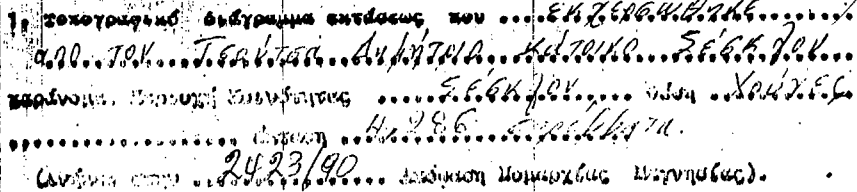 1. τοπογραφικό διάγραμμα εκτάσεως που .... εκχερσώθηκε ......
από τον ... Τσάντσα Δημήτριο κάτοικο Σέσκλου
παράνομα. Περιοχή Κοινότητας ..... Σέσκλου ..... θέση .. Χούνες
................ έκταση ... 4,286 στρέμματα.
(Ανήκει στην .. 2423/90 .... Απόφαση Νομαρχίας Μαγνησίας).